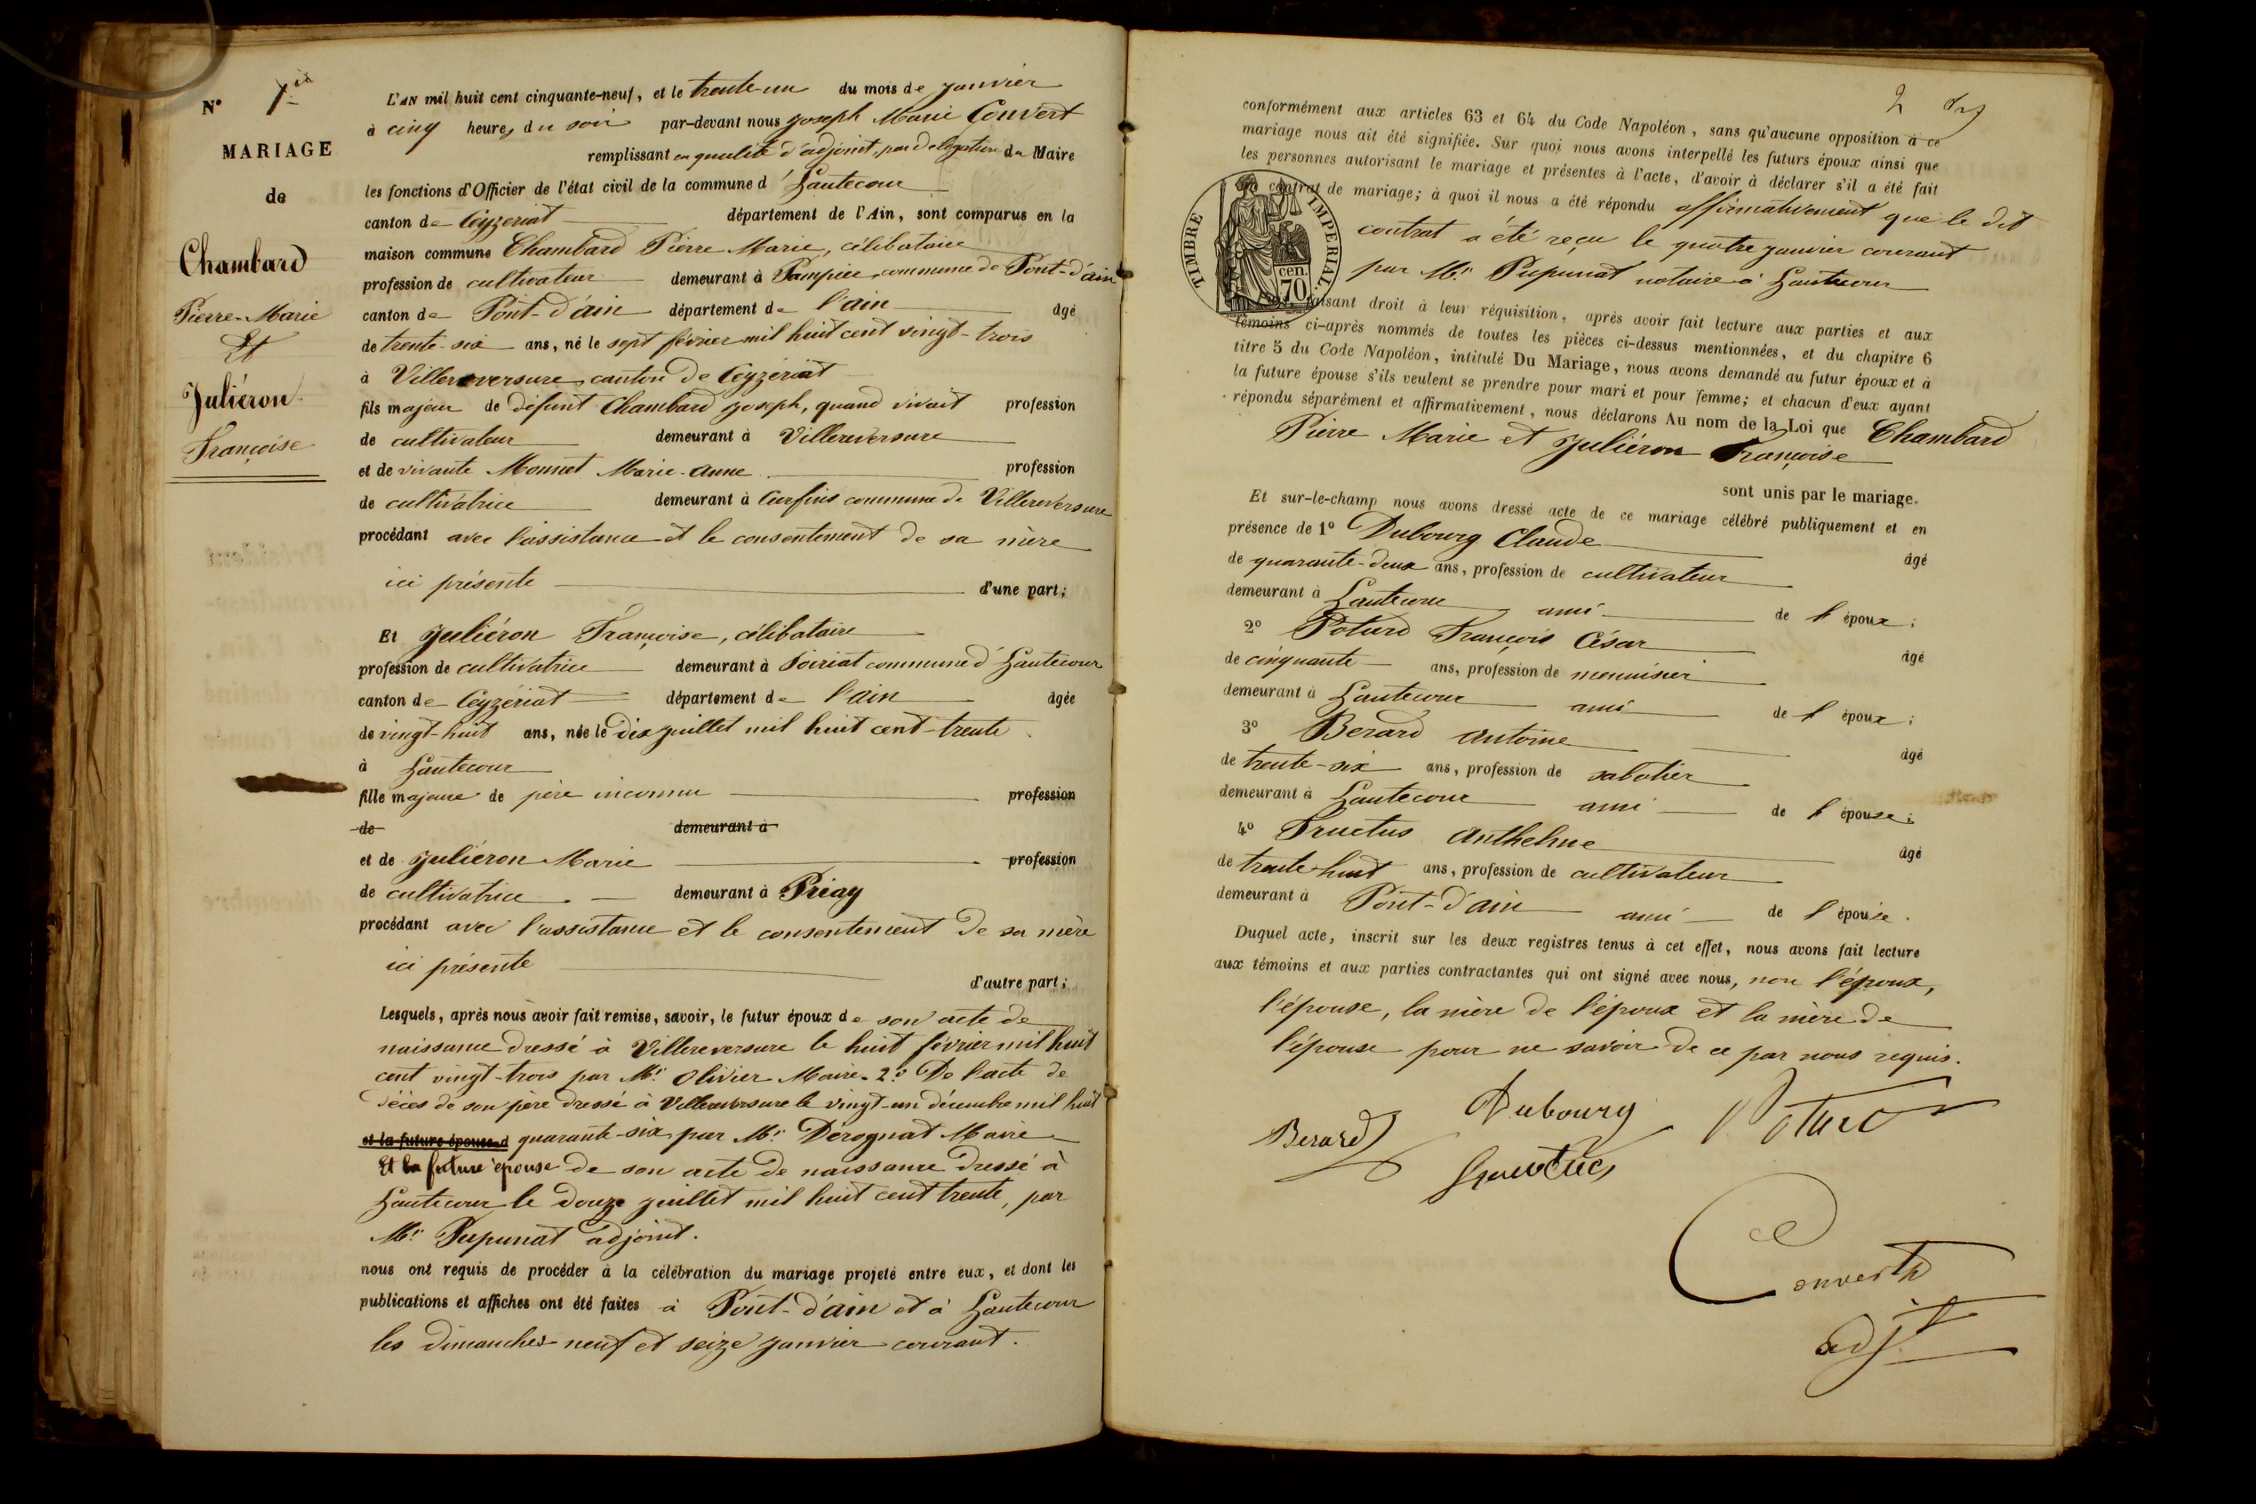 N° 1er
MARIAGE
de
Chambard
Pierre-Marie
Et
Juliéron
Françoise
L'AN mil huit cent cinquante-neuf, et le trente-un du mois de janvier
à cinq heures du soir par-devant nous Joseph Marie Convert
remplissant en qualité d'adjoint, par délégation du Maire
les fonctions d'Officier de l'état civil de la commune d'Hautecour
canton de Ceyzériat département de l'Ain, sont comparus en la
maison commune Chambard Pierre Marie, célibataire
profession de cultivateur demeurant à Pampier commune de Pont-d'ain
canton de Pont-d'ain département de l'ain agé
de trente-six ans, né le sept février mil huit cent vingt-trois
à Villereversure canton de Ceyzériat
fils majeur de défunt Chambard Joseph, quand vivait profession
de cultivateur demeurant à Villereversure
et de vivante Monnet Marie-Anne profession
de cultivatrice demeurant à commune de Villereversure
procédant avec l'assistance et le consentement de sa mère
ici présente d'une part;
Et Juliéron Françoise, célibataire
profession de cultivatrice demeurant à Soiriat commune d'Hautecour
canton de Ceyzériat département de l'ain agée
de vingt-huit ans, née le dix juillet mil huit cent-trente
à Hautecour
fille majeure de père inconnu profession
de demeurant à
et de Juliéron Marie profession
de cultivatrice demeurant à Priay
procédant avec l'assistance et le consentement de sa mère
ici présente
d'autre part;
Lesquels, après nous avoir fait remise, savoir, le futur époux de son acte de
naissance dressé à Villereversure le huit février mil huit
cent vingt-trois par Mr Olivier Maire. 2° De l'acte de
décès de son père dressé à Villereversure le vingt-un décembre mil huit
et la future épouse d quarante-six par Mr Dérognat Maire
Et la future épouse de son acte de naissance dressé à
Hautecour le douze juillet mil huit cent trente, par
Mr Pupunat adjoint.
nous ont requis de procéder à la célébration du mariage projeté entre eux, et dont les
publications et affiches ont été faites à Pont-d'ain et à Hautecour
les dimanches neuf et seize janvier courant.
2
conformément aux articles 63 et 64 du Code Napoléon, sans qu'aucune opposition à ce
mariage nous ait été signifiée. Sur quoi nous avons interpellé les futurs époux ainsi que
les personnes autorisant le mariage et présentes à l'acte, d'avoir à déclarer s'il a été fait
contrat de mariage; à quoi il nous a été répondu affirmativement que le dit
contrat a été reçu le quatre janvier courant
par Mr Pupunat notaire à Hautecour
TIMBRE IMPERIAL
cen. 70
faisant droit à leur réquisition, après avoir fait lecture aux parties et aux
témoins ci-après nommés de toutes les pièces ci-dessus mentionnées, et du chapitre 6
titre 5 du Code Napoléon, intitulé Du Mariage, nous avons demandé au futur époux et à
la future épouse s'ils veulent se prendre pour mari et pour femme; et chacun d'eux ayant
répondu séparément et affirmativement, nous déclarons Au nom de la Loi que Chambard
Pierre Marie et Juliéron Françoise
sont unis par le mariage.
Et sur-le-champ nous avons dressé acte de ce mariage célébré publiquement et en
présence de 1° Dubourg Claude âgé
de quarante-deux ans, profession de cultivateur
demeurant à Hautecour ami de l'époux;
2° Poturd François César âgé
de cinquante ans, profession de menuisier
demeurant à Hautecour ami de l'époux;
3° Berard Antoine âgé
de trente-six ans, profession de sabotier
demeurant à Hautecour ami de l'épouse;
4° Fructus Anthelme âgé
de trente-huit ans, profession de cultivateur
demeurant à Pont-d'ain ami de l'épouse.
Duquel acte, inscrit sur les deux registres tenus à cet effet, nous avons fait lecture
aux témoins et aux parties contractantes qui ont signé avec nous, non l'époux,
l'épouse, la mère de l'époux et la mère de
l'épouse pour ne savoir de ce par nous requis.
Berard Dubourg Poturd
Fructus
Convert
adjt